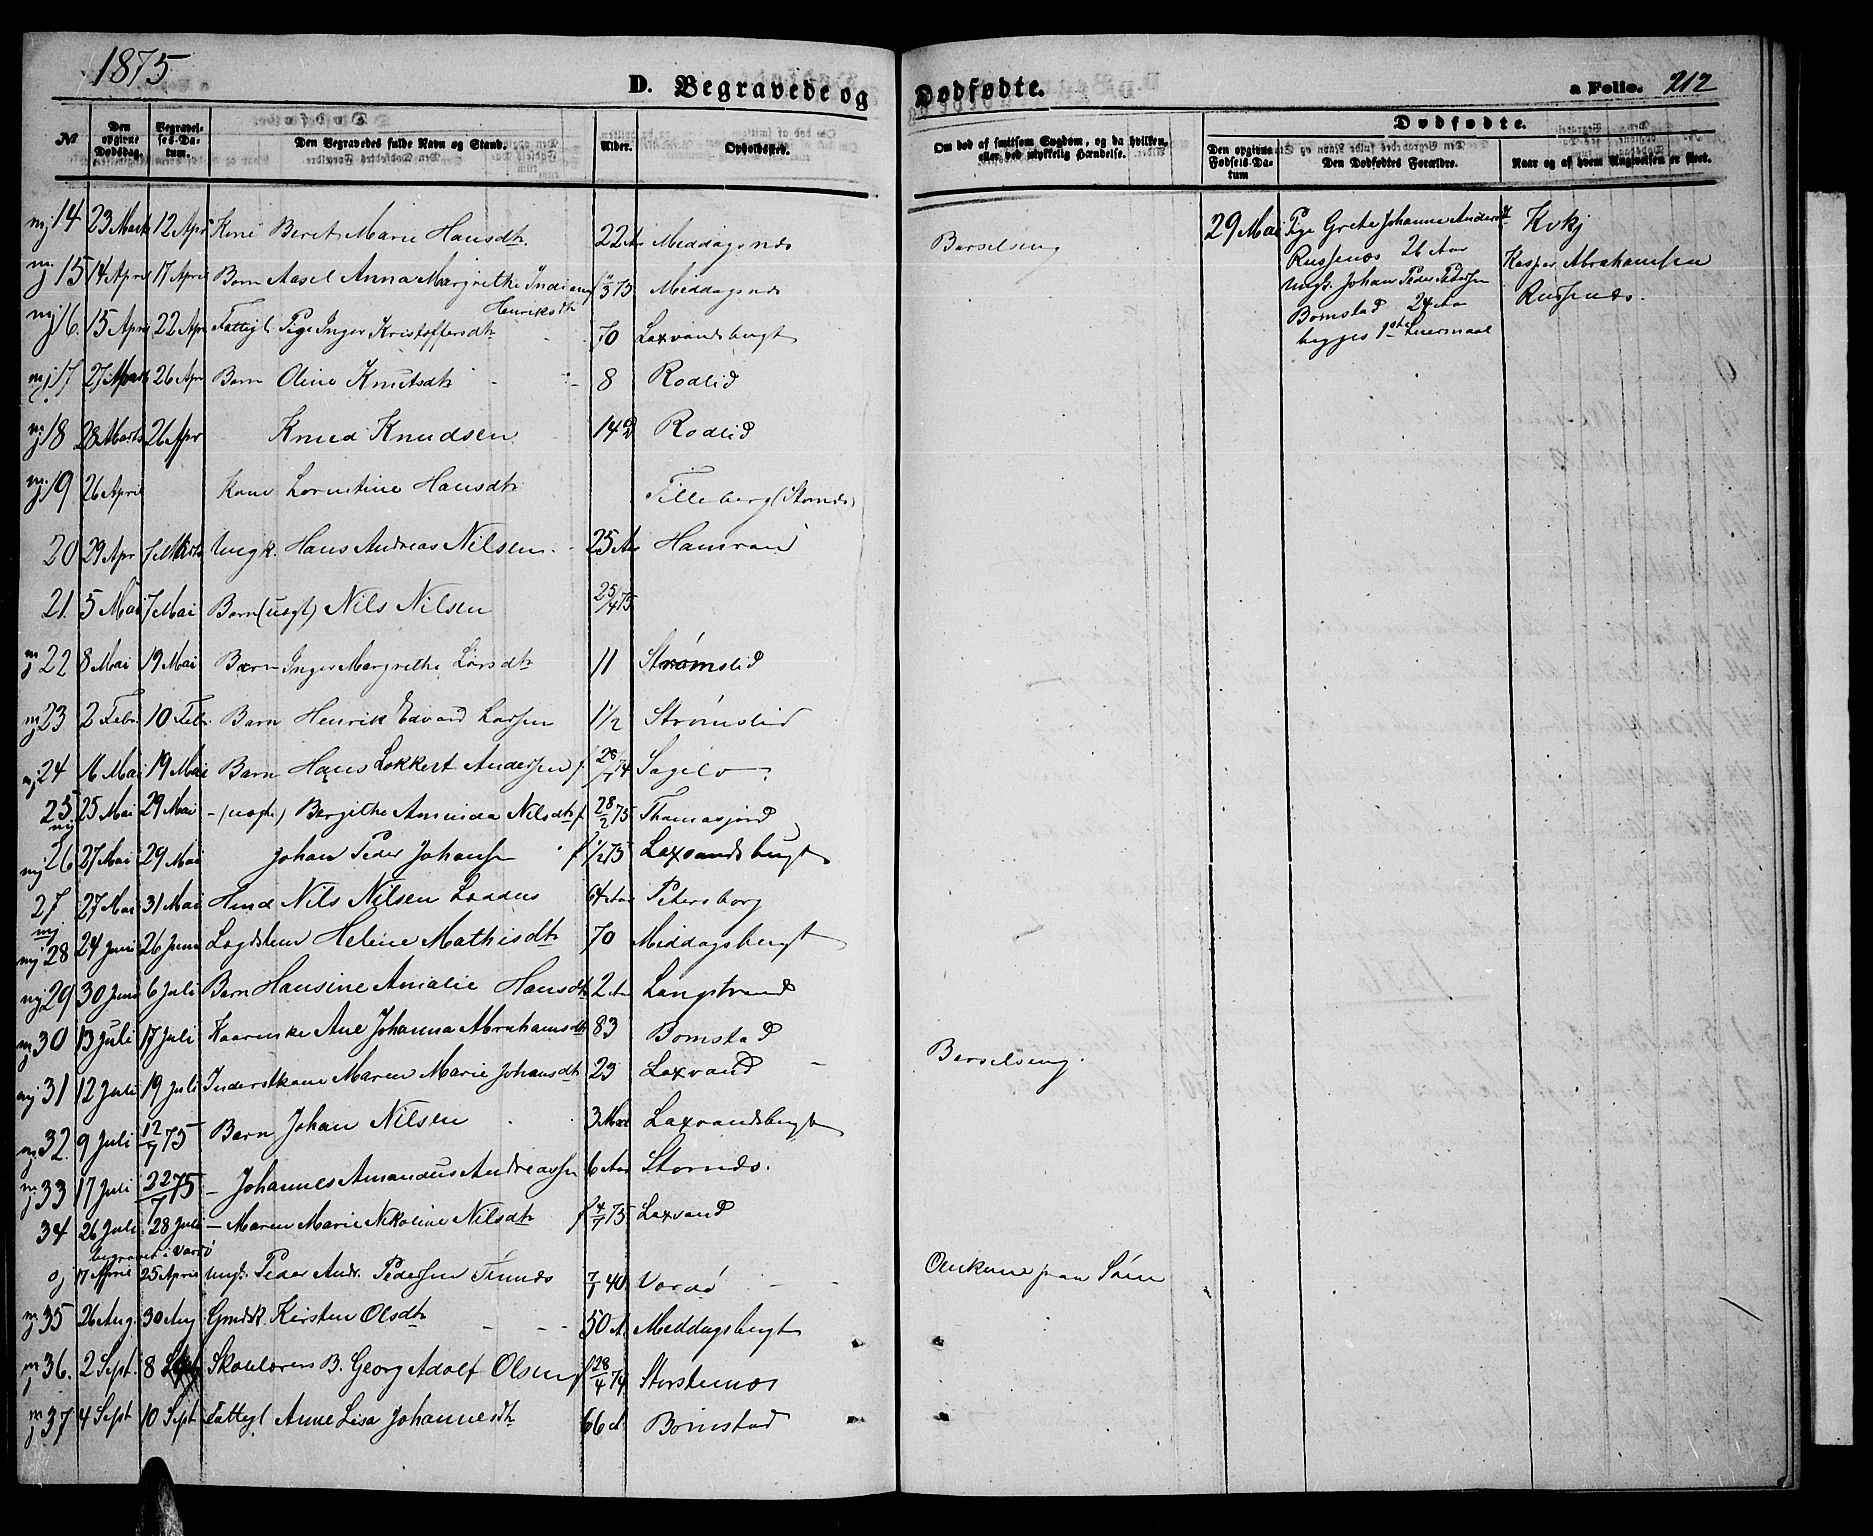 1875
D. Begravede og Dødfødte.
a Folio. 212
№ | Den opgivne Dødsdag. | Begravelses-Datum. | Den Begravedes fulde Navn og Stand. | Alder. | Opholdssted. | Om død af smitsom Sygdom, og da hvilken, eller ved ulykkelig Hændelse.
Dødfødte.
Den opgivne Fødsels-Datum | Den Dødfødtes Forældre. | Naar og af hvem Angivelsen er skeet.
14 | 23 Marts | 12 Apr | Kone Beret Marie Hansdtr | 22 Aar | Meddagsnæs | Barselseng
15 | 14 April | 17 April | Barn Aasel Anna Margrethe
Henriksdtr | 3 75 | Meddagsnæs
16. | 15 April | 22 Apr | Fattigl Pige Inger Kristoffersdtr | 70 | Laxvandsbugt
17 | 27 Marts | 26 Apr | Barn Oline Knutsdtr | 8 | Rodlid
18 | 28 Marts | 26 Apr | Knud Knudsen | 14 D | Rodlid
19 | 26 April | Kone Lorentine Hansdtr | Tilleberg (Stornæs)
20 | 29 Apr | Ungk. Hans Andreas Nilsen. | 25 Aar | Hamvand
21. | 5 Mai | 7 Mai | Barn (uægt) Nils Nilsen | 25/4 75
22 | 8 Mai | 19 Mai | Barn Inger Margrethe Larsdtr | 11 | Strømslid
23 | 2 Febr. | 10 Febr. | Barn Henrik Edvard Larsen | 1 1/2 | Strømslid
24 | 16 Mai | 19 Mai | Barn Hans Lokkert Andersen | f 28/7 74 | Sagelv
25 | 25 Mai | 29 Mai | - (uægte) Bergithe Aminda Nilsdtr | f 28/2 75 | Thomasjord
26 | 27 Mai | 29 Mai | Johan Peder Johansen | f 1/2 75 | Laxvandsbugt
27 | 27 Mai | 31 Mai | Nils Nilsen | 64 Aar | Petersborg
28 | 24 Juni | 26 Juni | Lægdslem Helene Mathisdtr | 70 | Middagsbugt
29 | 30 Juni | 6 Juli | Barn Hansine Amalie Hansdtr | 2 Aar | Langstrand
30 | 13 Juli | 17 Juli | Kaarenke Ane Johanna Abrahamsdtr | 83 | Bomstad
31 | 12 Juli | 19 Juli | Inderstkone Maren Marie Johansdtr | 23 | Laxvand | Barselseng.
32. | 9 Juli | 12/7 75 | Barn Johan Nilsen | 3 | Laxvandsbugt
33 | 17 Juli | 22/7 75 | - Johannes Amandus Andreassen | 6 Aar | Stornæs.
34 | 26 Juli | 28 Juli | - Maren Marie Nikoline Nilsdtr | f 4/7 75 | Laxvand
begravet i Vardø
17 April | 25 April | Ungk. Peder Andr. Pedersen | 7/1 40 | Vardø | Omkommen paa Søen
35 | 26 Aug. | 30 Aug | Gmdsk. Kirsten Olsdtr | 50 A. | Meddagsbugt
36. | 2 Sept. | 8 Sept | Skolelærens B. Georg Adolf Olsen | f 28/4 74 | Storstennæs
37 | 4 Sept | 10 Sept | Fattigl Anne Lisa Johannesdtr | 66 A | Bomstad
29 Mai | Pige Grete Johanne Andersdtr
Russenæs 26 Aar
Ungk. Johan Peder Pedersen
Bomstad 24 Aar
begges 1ste Leiermaal
Kirkesanger
Kasper Abrahamsen
Russenæs.